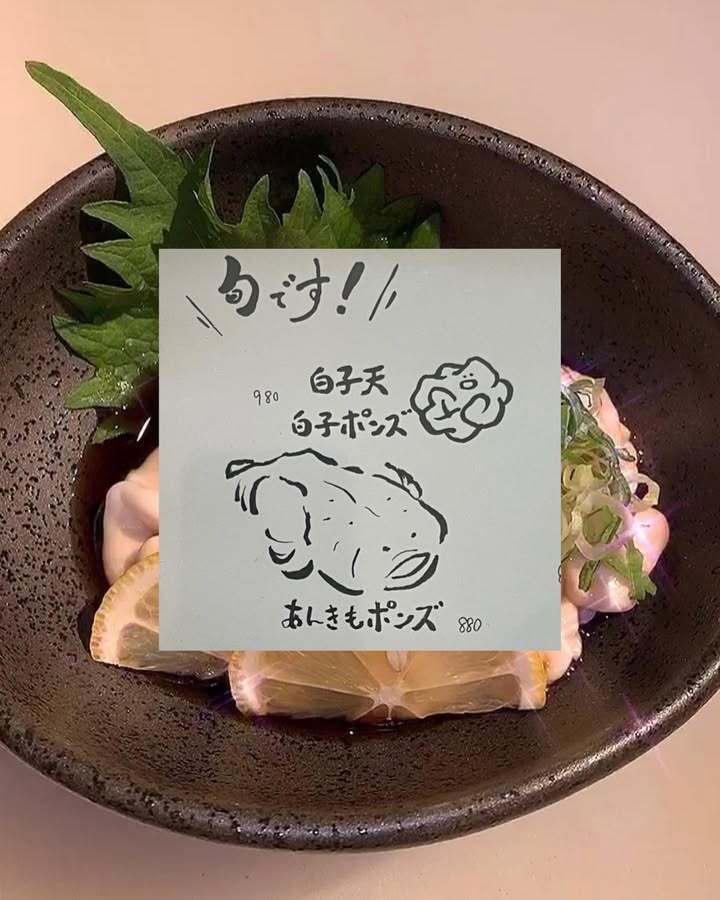 旬です!
980 白子天
白子ポンズ
あんきもポンズ 880